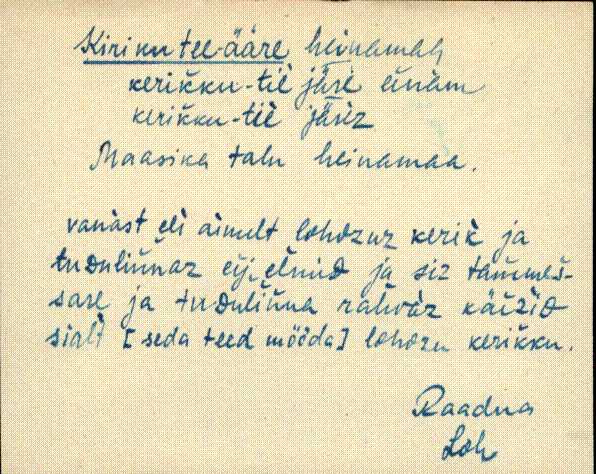 Kiriku tee-ääre heinamaa
kerikku-tiè järe einàm
kerikku-tiè järez
Maasika talu heinamaa.
vanàst eli ainult lohozuz kerik ja
tuduliñnaz eij elnud ja siz tammes-
sare ja tuduliñna rahvàz käizid
sialt [seda teed mööda] lohozu kerikku.
Raadna
Loh